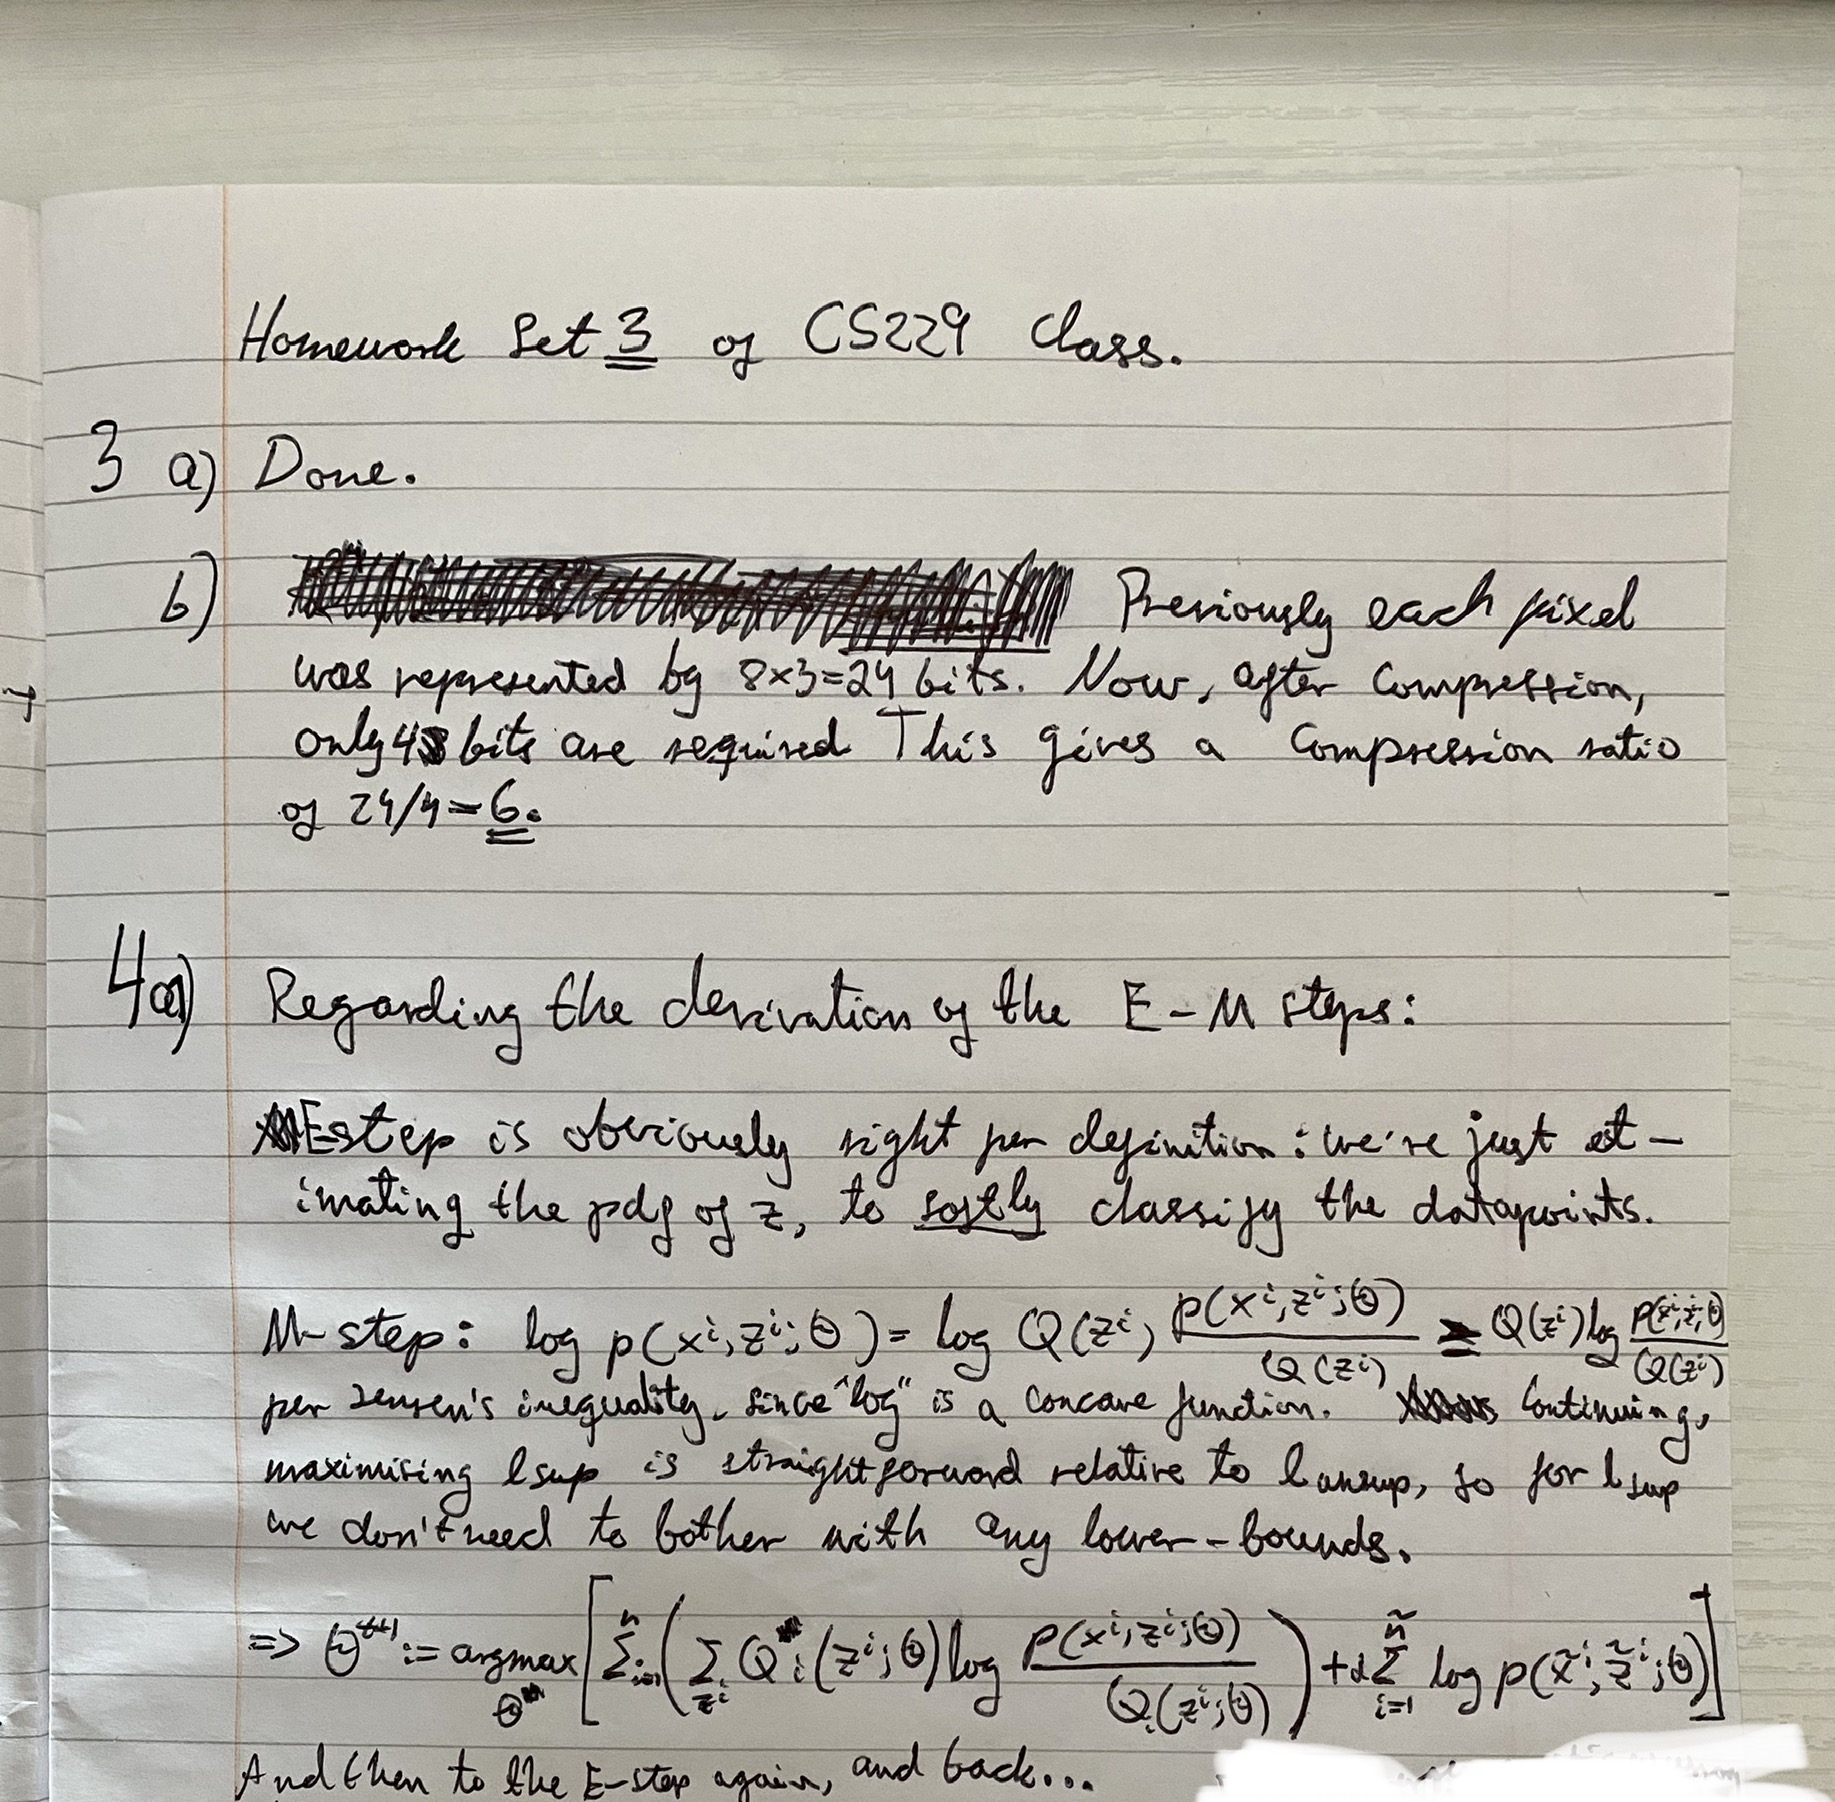 Homework Set 3 of CS229 Class.
3 a) Done.
b) Previously each pixel
was represented by 8×3=24 bits. Now, after compression,
only 4 bits are required This gives a compression ratio
of 24/4=6.
4a) Regarding the derivation of the E-M steps:
E step is obviously right per definition: we're just est-
imating the pdf of z, to softly classify the datapoints.
M-step: log p(xⁱ, zⁱ; θ) = log Q(zⁱ) p(xⁱ, zⁱ; θ) / Q(zⁱ) ≥ Q(zⁱ) log p(xⁱ, zⁱ; θ) / Q(zⁱ)
per Jensen's inequality, since "log" is a concave function. Continuing,
maximising lsup is straightforward relative to lunsup, so for lsup
we don't need to bother with any lower-bounds.
=> θᵗ⁺¹ := argmax_θ [ Σⁿᵢ₌₁ ( Σ_zⁱ Qᵢ(zⁱ; θ) log p(xⁱ, zⁱ; θ) / Qᵢ(zⁱ; θ) ) + α Σ^ñ_i=1 log p(x̃ⁱ, z̃ⁱ; θ) ]
And then to the E-step again, and back...